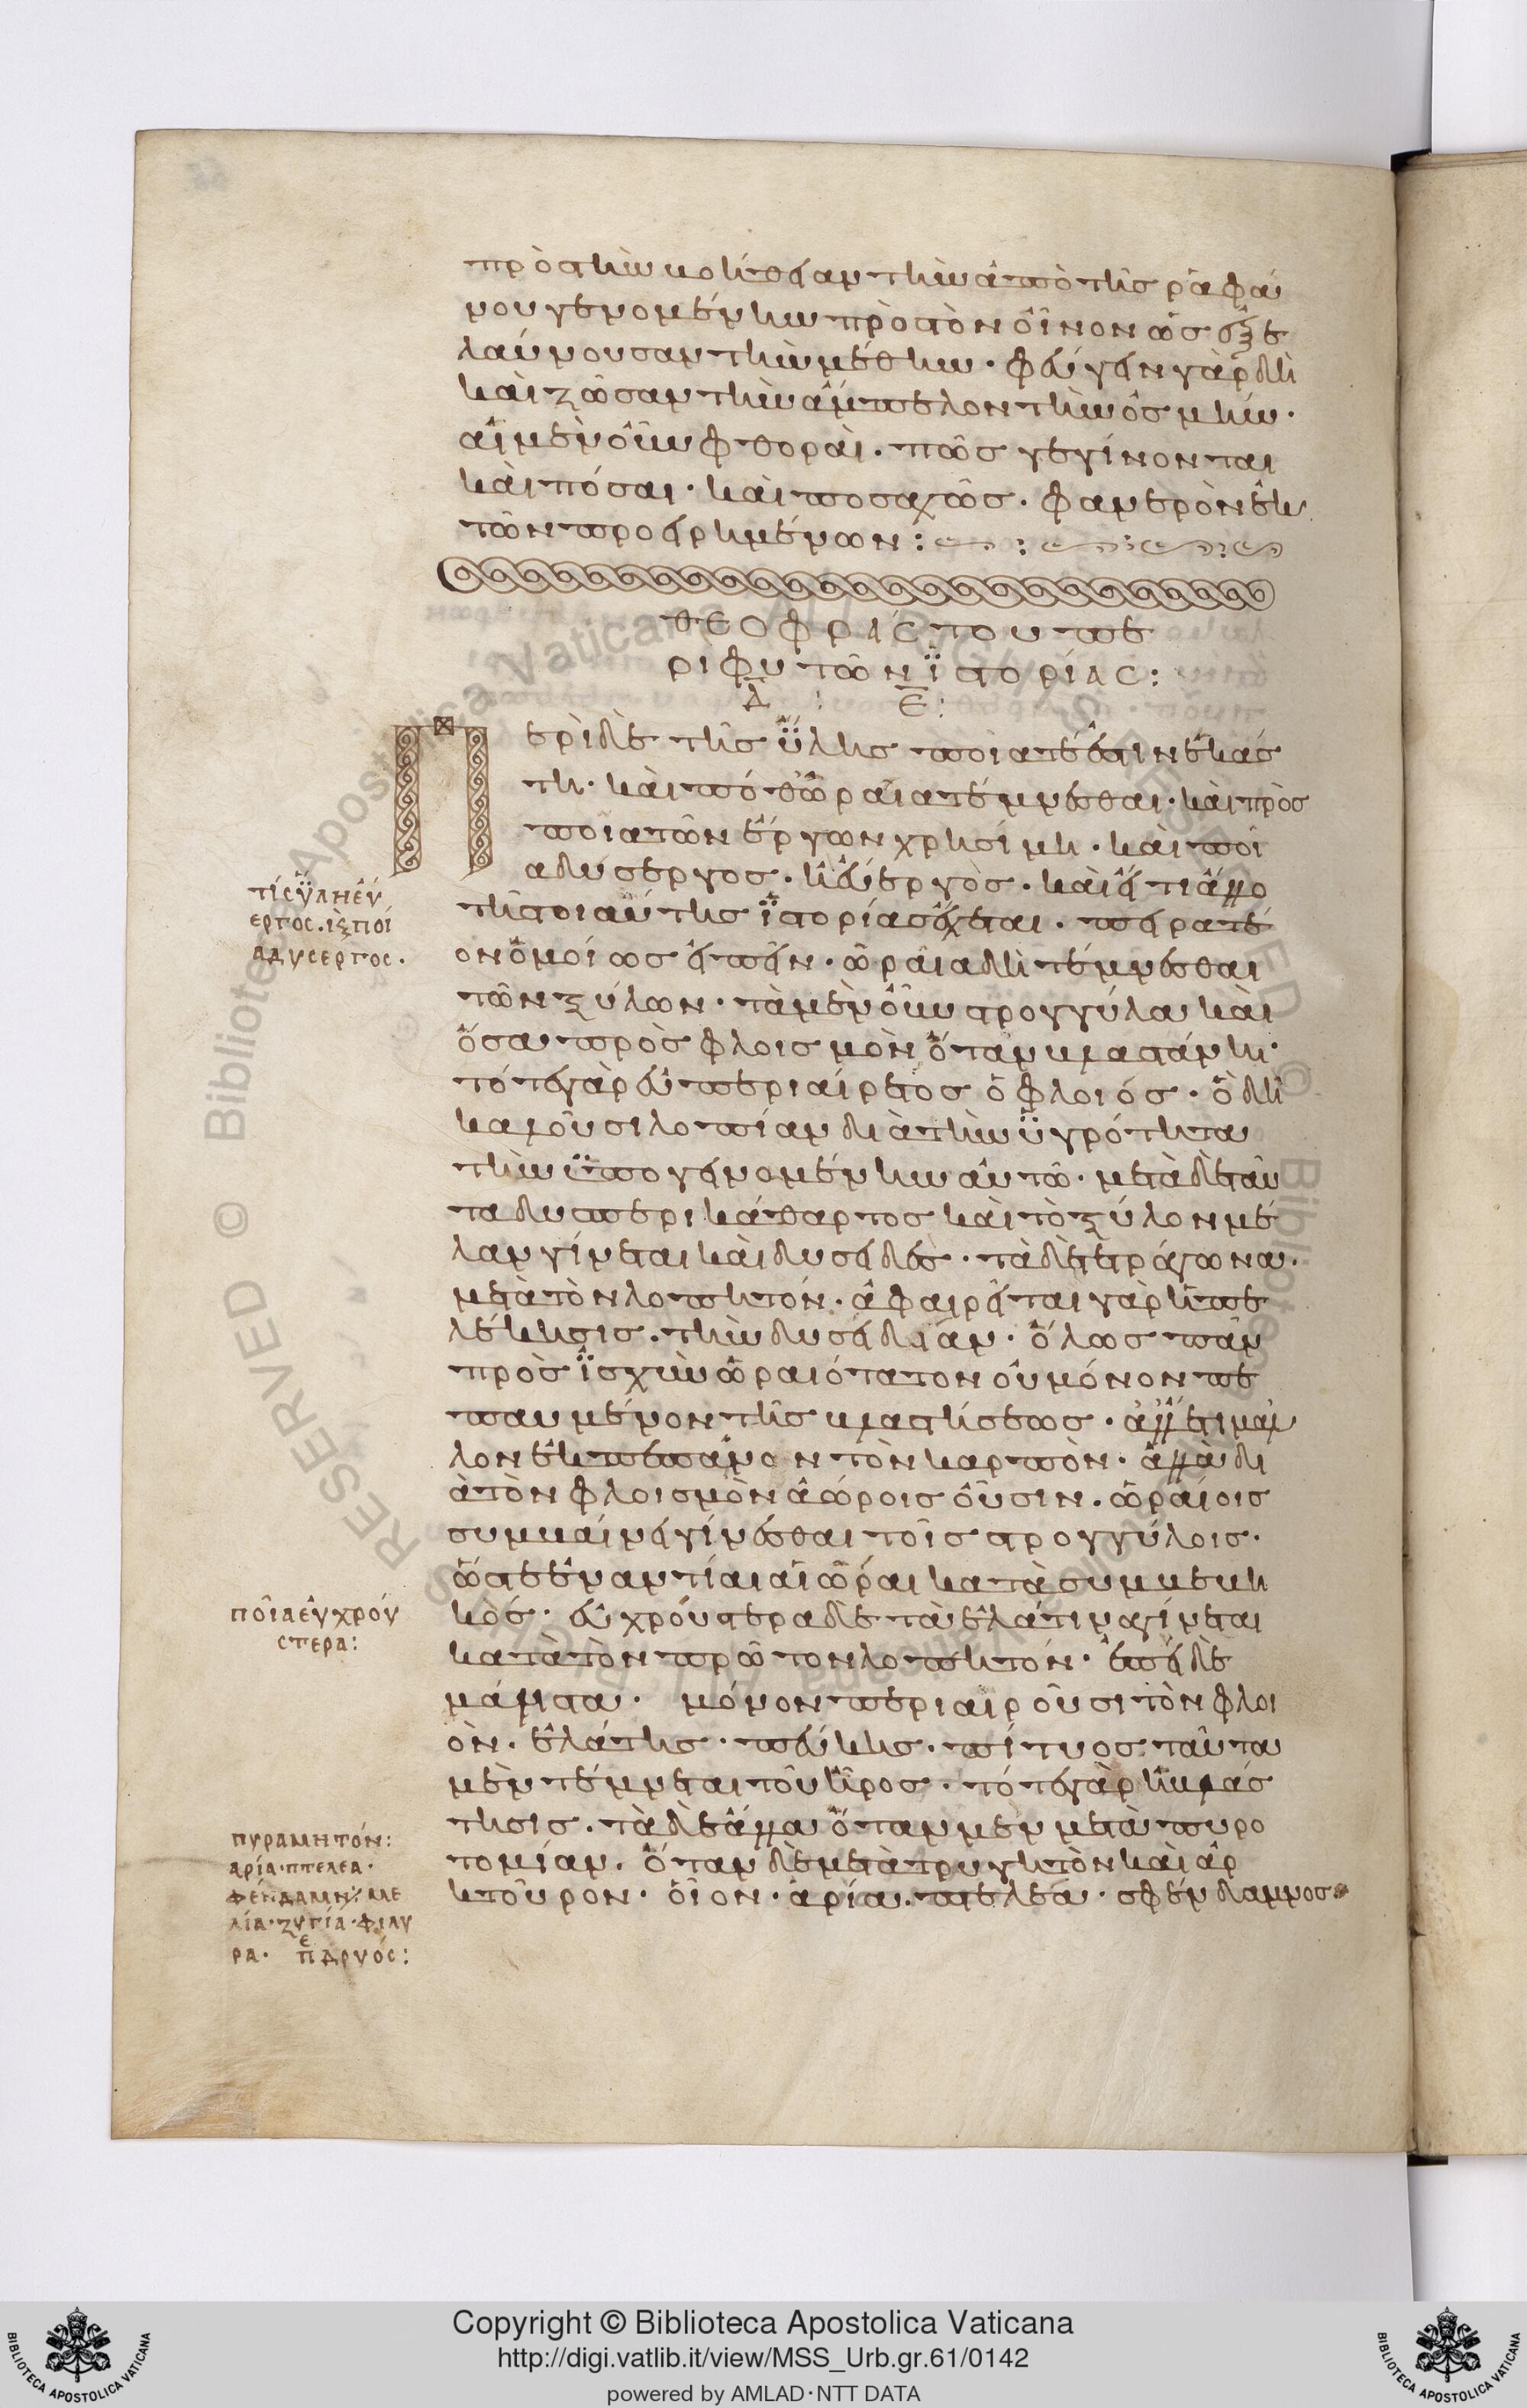 πρὸς τὴν βοήθειαν τὴν ἀπὸ τῆς ῥαφά
νου γενομένην πρὸς τὸν οἶνον ὡς ἐξε
λαύνουσαν τὴν μέθην· φεύγειν γὰρ δὴ
καὶ ζῶσαν τὴν ἄμπελον τὴν ὀσμήν·
αἱ μὲν οὖν φθοραὶ. πῶς γε γίνονται
καὶ πόσαι· καὶ ποσαχῶς. φανερὸν ἐκ
τῶν προειρημένων:
ΘΕΟΦΡΑΣΤΟΥ ΠΕ
ΡΙ ΦΥΤΩΝ ΪΣΤΟΡΙΑΣ:
Δ : Ε:
Περὶ δὲ τῆς ὕλης ποία τέ ἐστιν ἑκάσ
τη· καὶ πόθ' ὡραία τέμνεσθαι· καὶ πρὸς
ποῖα τῶν ἔργων χρησίμη. καὶ ποί
α δύσεργος. ἢ εὔεργὸς. καὶ εἴ τι ἄλλο
τῆς τοιαύτης ἱστορίας ἔχεται. πειρατέ
ον ὁμοίως εἰπεῖν. ὡραῖα δὴ τέμνεσθαι
τῶν ξύλων· τὰ μὲν οὖν στρογγύλα καὶ
ὅσα πρὸς φλοισμὸν ὅταν βλαστάνη·
τότε γὰρ εὐπεριαίρετος ὁ φλοιός. ὃ δὴ
καλοῦσι λοπίαν διὰ τὴν ὑγρότητα
τὴν ὑπογεινομένην αὐτῶ. μετὰ δὲ ταῦ
τα δυσπερικάθαρτος καὶ τὸ ξύλον μέ
λαν γίνεται καὶ δυσειδές. τὰ δὲ τετράγωνα.
μετὰ τὸν λοπητόν. ἀφαιρεῖται γὰρ ἡ πε
λέκησις. τὴν δυσείδειαν. ὅλως πᾶν
πρὸς ἰσχὺν ὡραιότατον οὐ μόνον πε
παυμένον τῆς βλαστήσεως. ἀλλ' ἔτι μᾶλ
λον ἐκπέπαν ον τὸν καρπὸν. ἀλλὰ δι
ὰ τὸν φλοισμὸν ἀώροις οὖσιν. ὡραίοις
συμβαίνει γίνεσθαι τοῖς στρογγύλοις.
ὥστε ἐναντίαι αἱ ὧραι κατὰ συμβεβη
κὸς. εὐχρούστερα δὲ τὰ ἐλάτινα γίνεται
κατὰ τὸν πρῶτον λοπητόν. ἐπεὶ δὲ
μάλιστα. μόνον περιαιροῦσι τὸν φλοι
ὸν. ἐλάτης. πεύκης. πίτυος ταῦτα
μὲν τέμνεται τοῦ ἦρος. τότε γὰρ ἡ βλάσ
τησις. τὰ δὲ ἄλλα ὅταν μὲν μετὰ πυρο
τομίαν. ὅταν δὲ μετὰ τρυγητὸν καὶ ἀρ
κτοῦρον· οἷον. ἀρία. πτελέα. σφένδαμνος
τίς ὕλη εὔ
εργος. κ(αὶ) ποί
α δύσεργος.
ποῖα εὐχρού
στερα:
πυραμητόν:
ἀρία. πτελέα.
φένδαμν με
λία. ζυγία. φιλύ
ρα. δρυός:
Copyright © Biblioteca Apostolica Vaticana
http://digi.vatlib.it/view/MSS_Urb.gr.61/0142
powered by AMLAD·NTT DATA